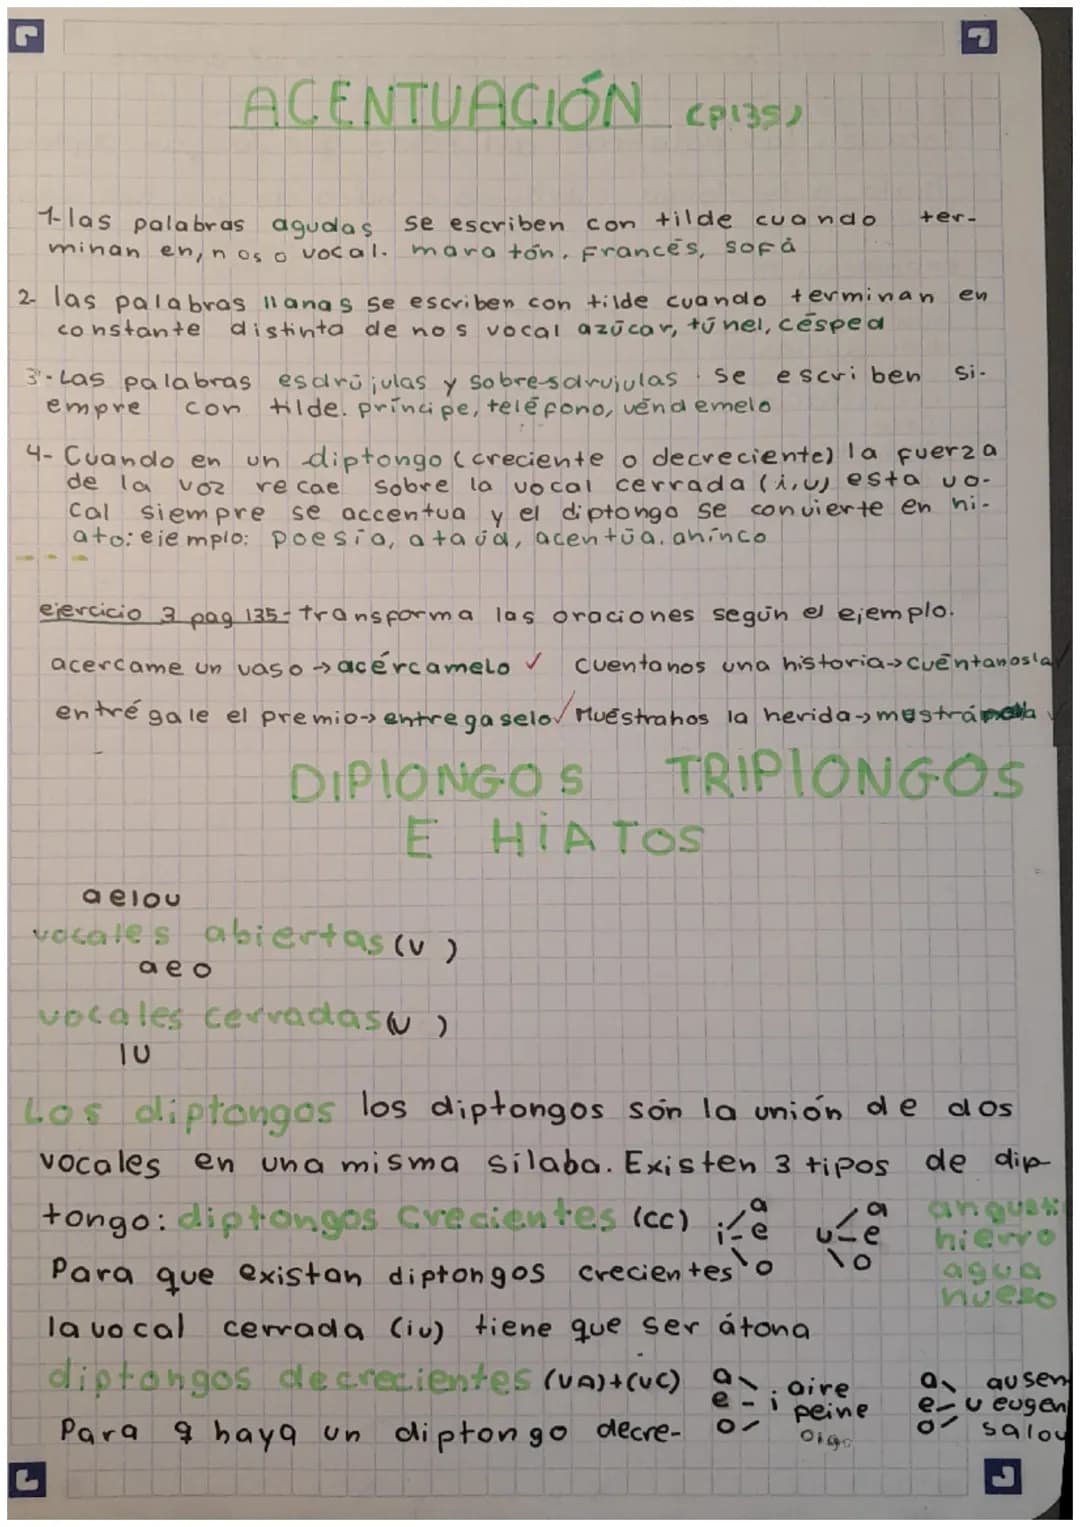 ACENTUACIÓN (P135)
1-las palabras agudas se escriben con tilde cuando ter-
minan en, n os o vocal. maratón, Francés, sofá
2- las palabras llanas se escriben con tilde cuando terminan en
constante distinta de no s vocal azúcar, túnel, césped
3-Las palabras esdrújulas y sobresdrujulas se escriben si-
empre con tilde. príncipe, teléfono, véndemelo
4- Cuando en un diptongo (creciente o decreciente) la fuerza
de la voz recae sobre la vocal cerrada (i,u) esta vo-
cal siempre se accentua y el diptongo se convierte en hi-
ato: ejemplo: poesía, ataúd, acentúa. ahínco
ejercicio 3 pag 135- transforma las oraciones según el ejemplo.
acercame un vaso → acércamelo ✓ Cuentanos una historia → cuéntanosla
entrégale el premio → entregaselo ✓ Muéstrahos la herida →
DIPTONGOS TRIPTONGOS
E HiATOS
aeiou
vocales abiertas (v )
aeo
vocales cerradas (v )
IU
Los diptongos los diptongos són la unión de dos
vocales en una misma sílaba. Existen 3 tipos de dip-
tongo: diptongos crecientes (cc) i a e o u a e o
hierro
agua
hueso
Para que existan diptongos crecientes
la vocal cerrada (iu) tiene que ser átona
diptongos decrecientes (VA)+(VC) a e o i aire peine oigo a e o u ausen eugen salou
Para q haya un diptongo decre-